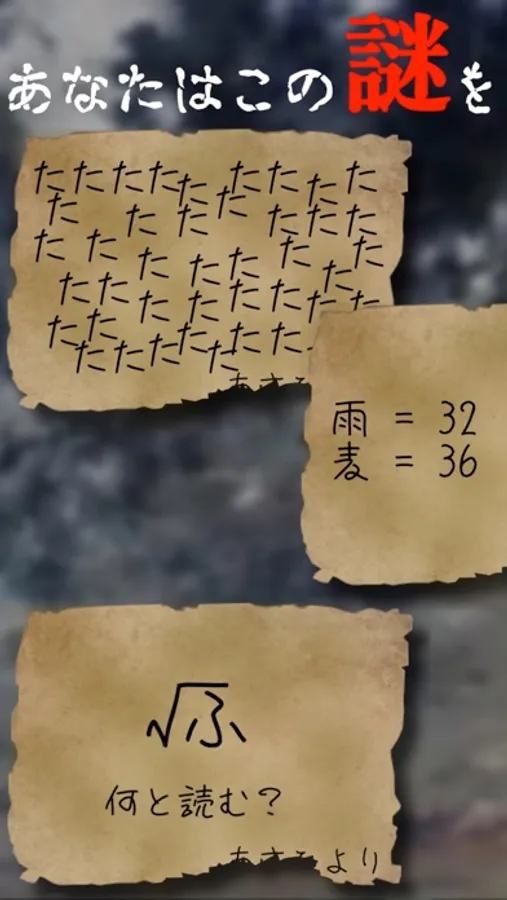 あなたはこの謎を
たたたたたたたたた
たたたたたたた
たたたたたたた
たたたたたたたたた
たたたたた
たたたた
雨 = 32
麦 = 36
√ふ
何と読む？
より